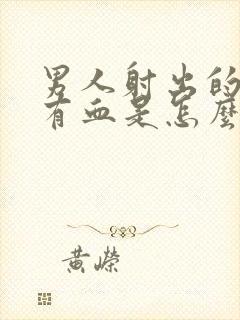 男人射出的
有血是怎麼
黃嶸